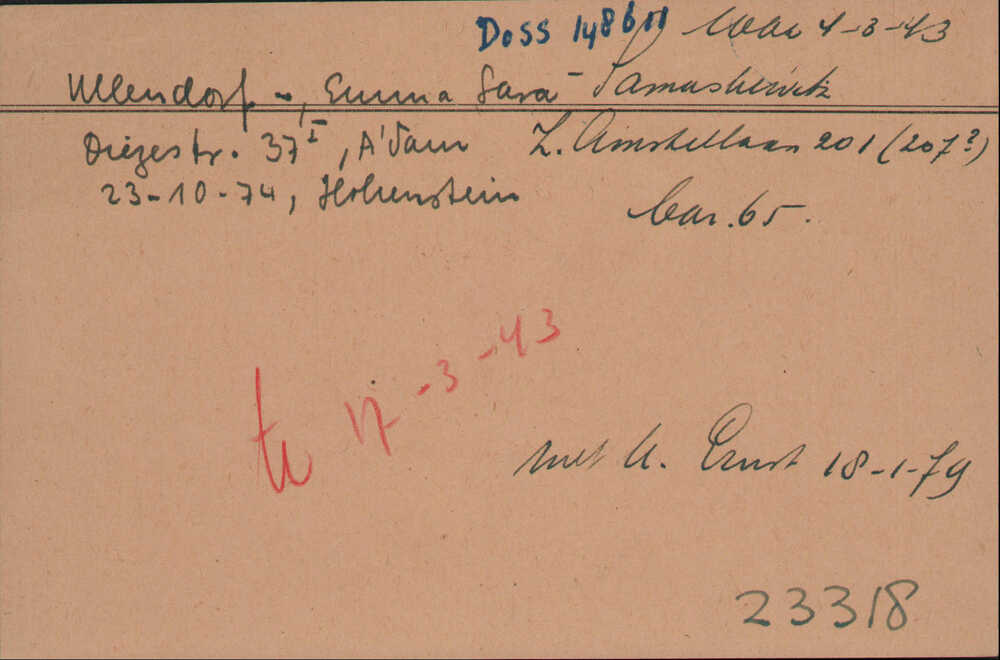 Doss 1486 Wbk 4-3-43
Ullendorf -, Emma Sara - Tamashewitz
Diezestr. 37 I, A'dam Z. Amstellaan 201 (207?)
23-10-74, Hohenstein
bar. 65.
tr 17-3-43
met U. Ernst 18-1-79
23318